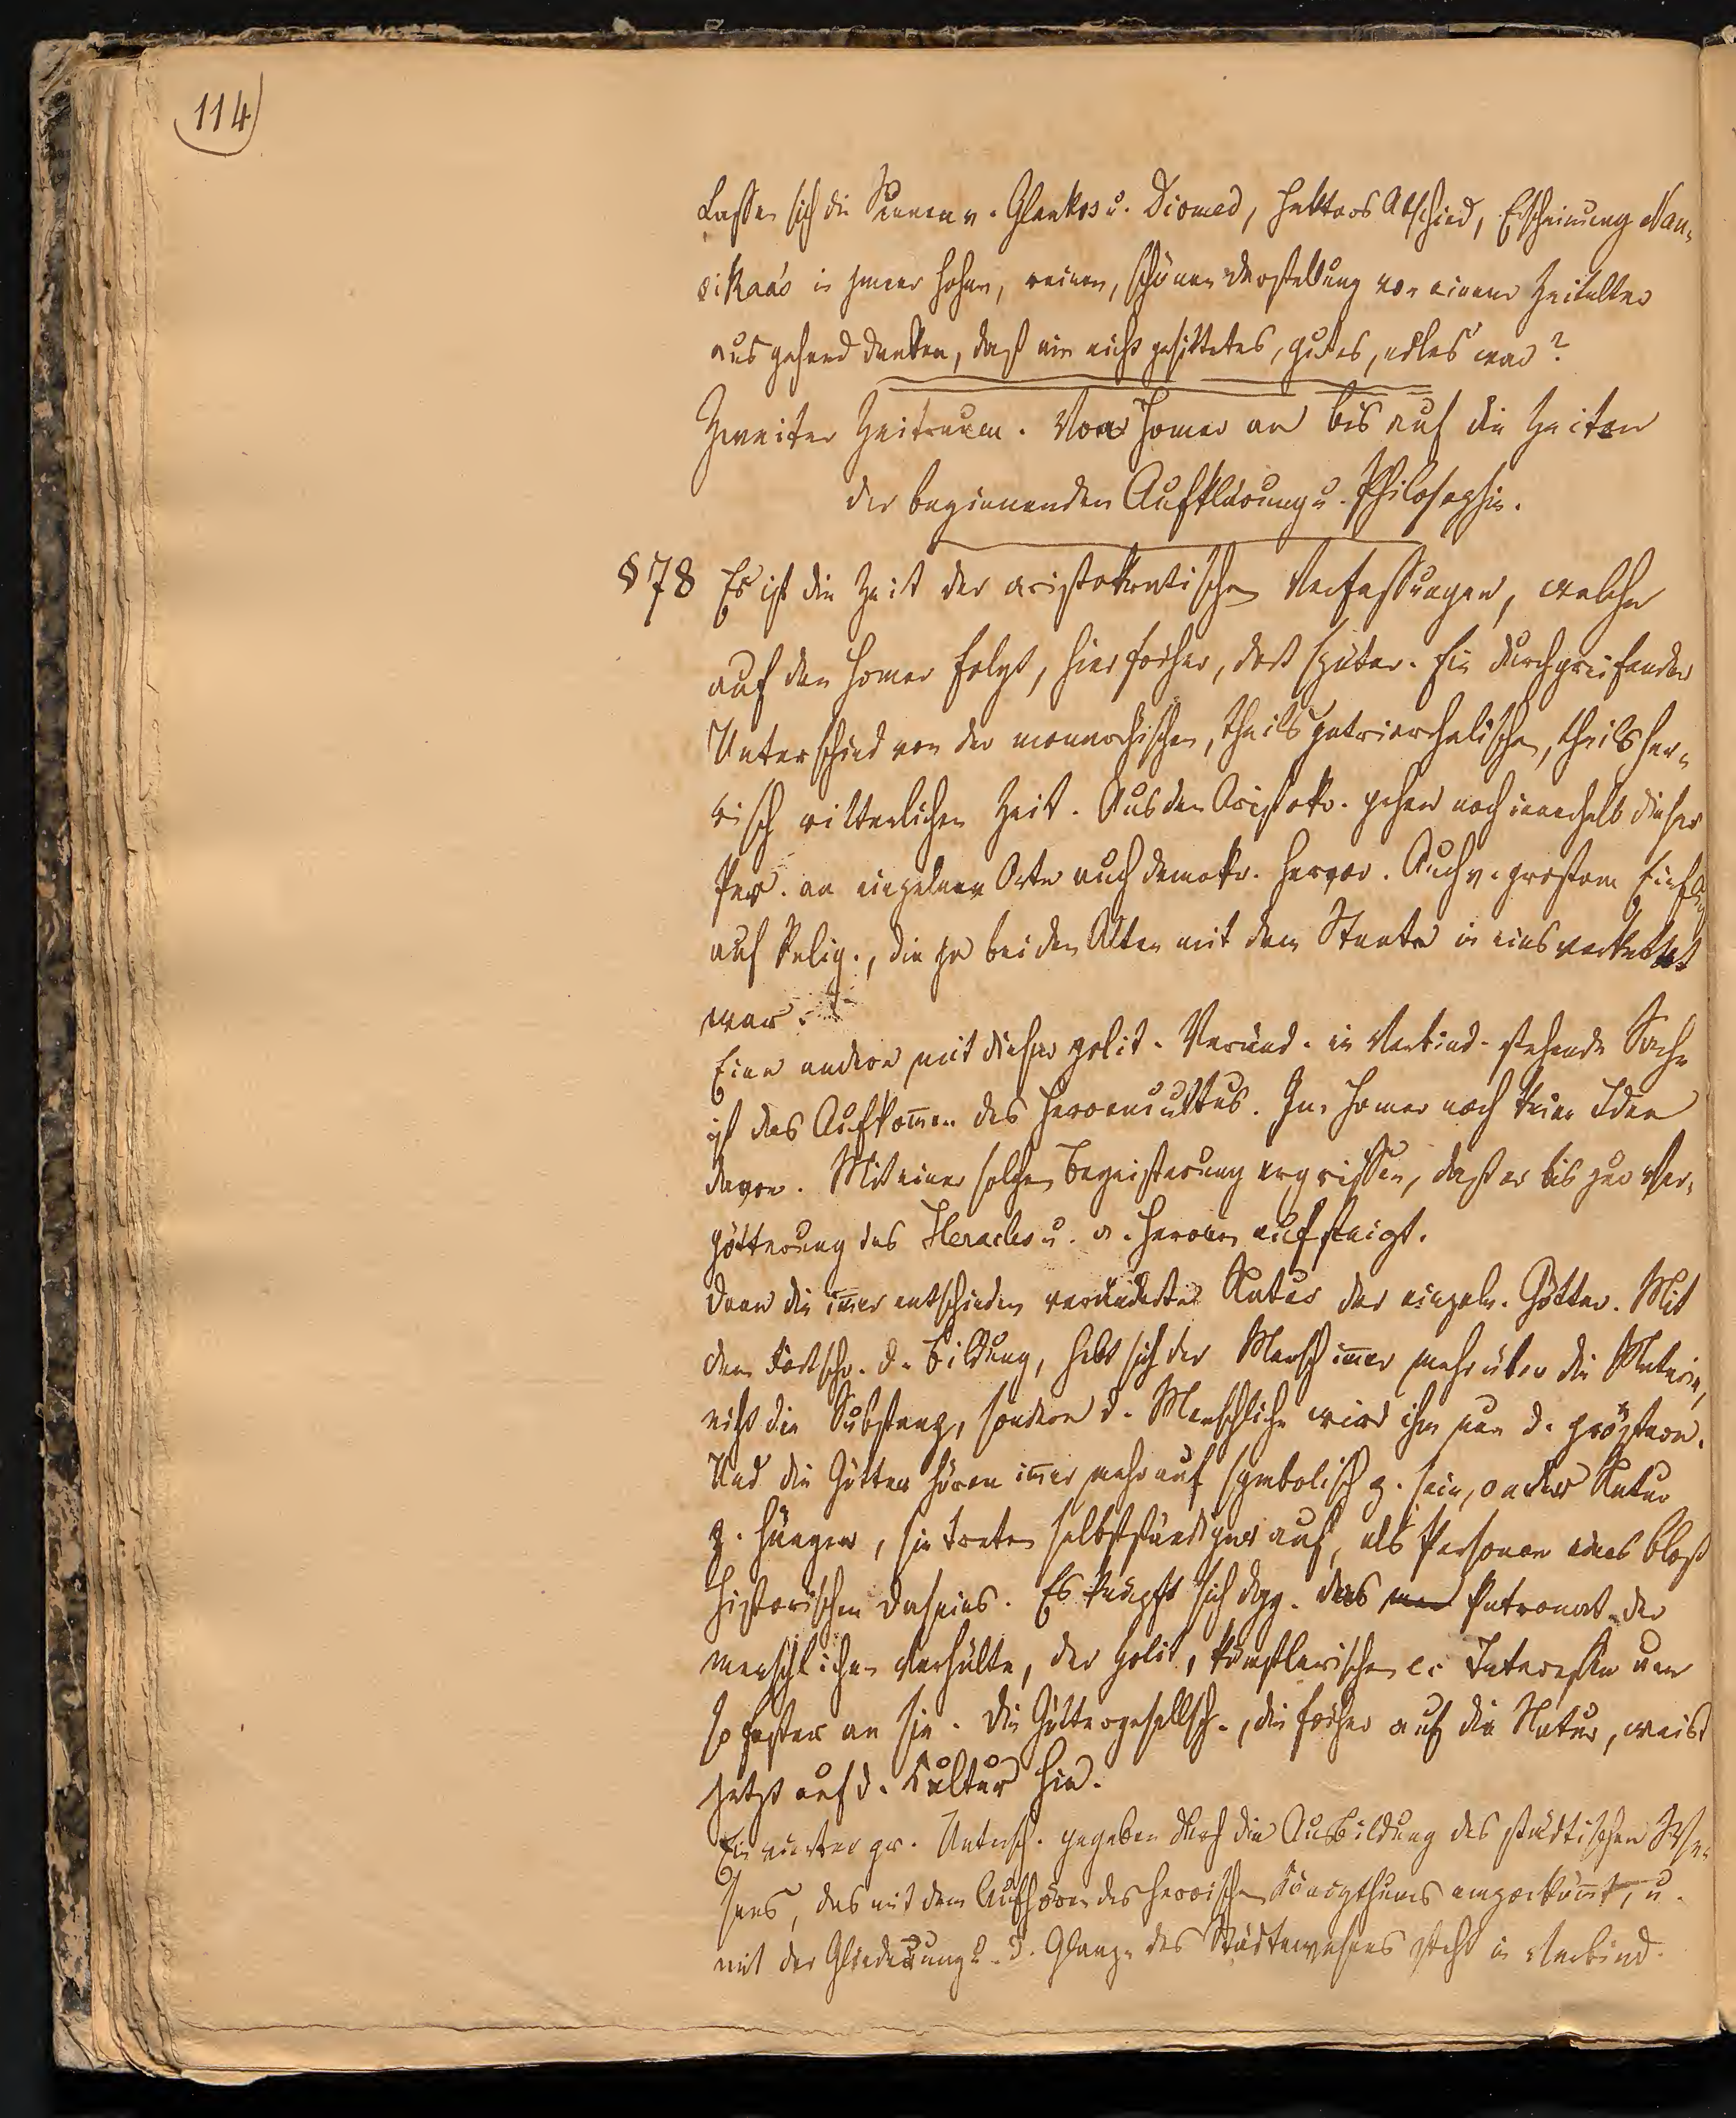 114
Lassen sich die Scenen v. Glaukos u. Diomed, Hektors Abschied, Erscheinung Nau-
sikaa's in jener hohen, reinen, schönen Darstellung von einem Zeitalter
ausgehend denken, daß nie nicht gesittetes, gutes, edles war?
Zweiter Zeitraum. Von Homer an bis auf die Zeiten
der beginnenden Aufklärung u. Philosophie.
§ 78 Es ist die Zeit der aristokratischen Verfassungen, welche
auf den Homer folgt, hier früher, dort später. Ein durchgreifender
Unterschied von der monarchischen, theils patriarchalischen, theils her-
oisch ritterlichen Zeit. Aus den Aristokr. gehen noch innerhalb dieser
Per. an einzelnen Orte auch demokr. hervor. Auch v. grostem Einfluß
auf Relig., die ja bei den Alten mit dem Staate in eins verkettet
war.
Eine andere mit dieser polit. Veränd. in Verbind. stehende Sache
ist das Aufkom̅en des Heroencultus. Im Homer noch keine Idee
davon. Mit einer solchen Begeisterung ergriffen, daß er bis zur Ver-
götterung des Heracles u. a. Heroen aufsteigt.
Dann die im̅er entschieden veränderte Natur der einzeln. Götter. Mit
dem Fortschr. d. Bildung, hebt sich der Mensch im̅er mehr über die Materie,
nicht die Substanz, sondern d. Menschliche wird ihm nun d. größere.
Und die Götter hören im̅er mehr auf symbolisch z. sein, an der Natur
z. hängen, sie treten selbstständiger auf, als Personen eines bloß
historischen Daseins. Es knüpft sich dgg. das Patronat der
menschlichen Verhälte, der polit, künstlerischen ec Interessen um
so fester an sie. Die Göttergesellsch., die früher auf die Natur, weist
jetzt auf d. Cultur hin.
Ein vierter gr. Untersch. gegeben durch die Ausbildung des städtischen We-
sens, das mit dem Aufhören des heroischen Königthums emporkom̅t, u.
mit der Gliederung u. d. Glanze des Städtewesens steht in Verbind.